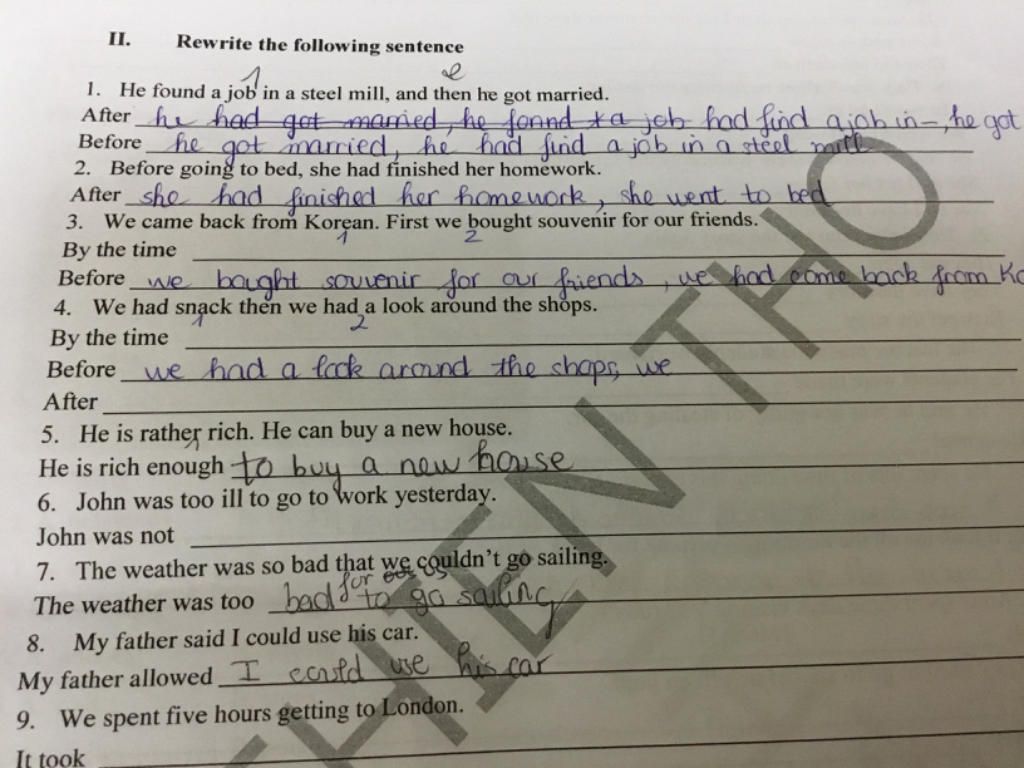 II. Rewrite the following sentence
1 2
1. He found a job in a steel mill, and then he got married.
After he had got married, he found a job had find a job in –, he got
Before he got married, he had find a job in a steel mill
2. Before going to bed, she had finished her homework.
After she had finished her homework, she went to bed
3. We came back from Korean. First we bought souvenir for our friends.
1 2
By the time
Before we bought souvenir for our friends, we had come back from Ko
4. We had snack then we had a look around the shops.
1 2
By the time
Before we had a look around the shops, we
After
5. He is rather rich. He can buy a new house.
He is rich enough to buy a new house
6. John was too ill to go to work yesterday.
John was not
7. The weather was so bad that we couldn't go sailing.
for us
The weather was too bad to go sailing
8. My father said I could use his car.
My father allowed I could use his car
9. We spent five hours getting to London.
It took
THIEN THO